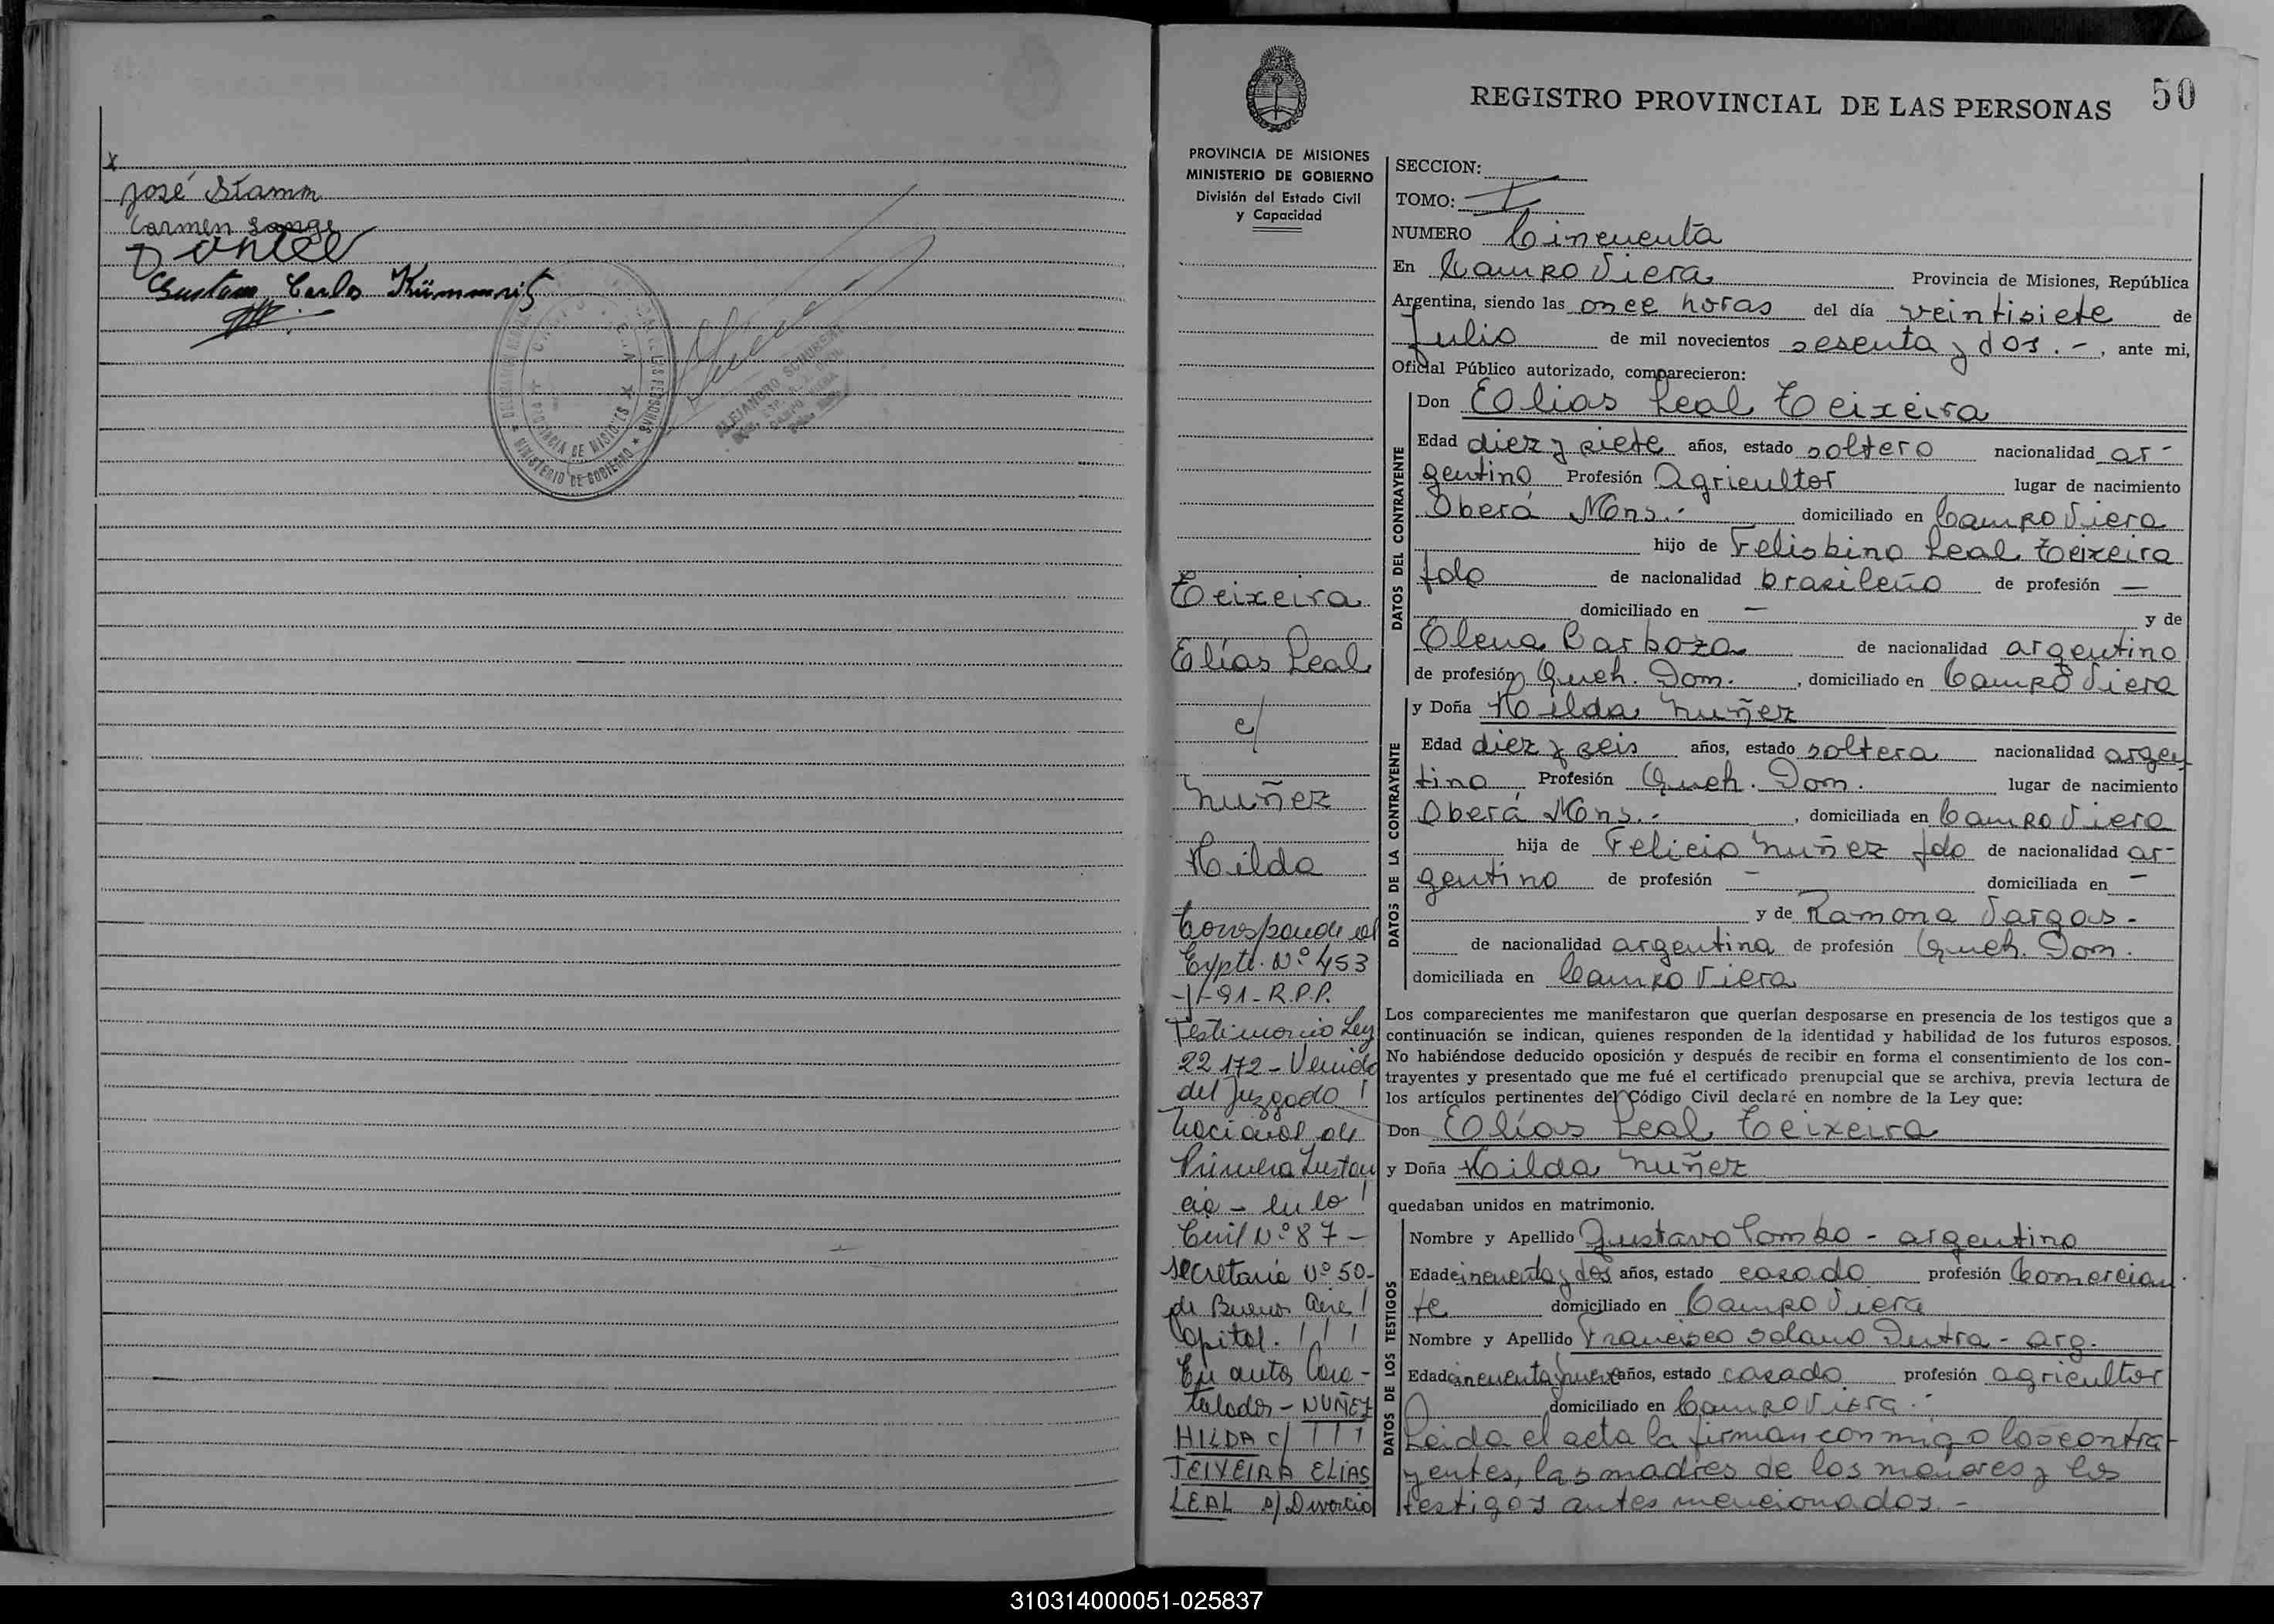 x
José Stamm
Carmen Lange
Gustavo Carlo
MINISTERIO DE GOBIERNO
PROVINCIA DE MISIONES
ALEJANDRO
50
REGISTRO PROVINCIAL DE LAS PERSONAS
PROVINCIA DE MISIONES
MINISTERIO DE GOBIERNO
División del Estado Civil
y Capacidad
Teixeira
Elías Leal
c/
Nuñez
Hilda
Corresponde al
Expte. Nº 453
-91-R.P.P.
Testimonio Ley
22.172 - Venido
del Juzgado
Nacional de
Primera Instan
cia - en lo
Civil Nº 87 -
Secretaría Nº 50-
de Buenos Aires
Capital.
En autos Cara-
tulados - NUÑEZ
HILDA c/
TEIXEIRA ELIAS
LEAL s/ Divorcio
SECCION:
TOMO: I
NUMERO Cincuenta
En Campo Viera Provincia de Misiones, República
Argentina, siendo las once horas del día veintisiete de
Julio de mil novecientos sesenta y dos.-, ante mi,
Oficial Público autorizado, comparecieron:
DATOS DEL CONTRAYENTE
Don Elias Leal Teixeira
Edad diez y siete años, estado soltero nacionalidad ar-
gentino Profesión Agricultor lugar de nacimiento
Oberá Mns.- domiciliado en Campo Viera
hijo de Felisbino Leal Teixeira
fdo de nacionalidad brasileño de profesión —
domiciliado en — y de
Elena Barboza de nacionalidad argentino
de profesión Queh. Dom. , domiciliado en Campo Viera
DATOS DE LA CONTRAYENTE
y Doña Hilda Nuñez
Edad diez y seis años, estado soltera nacionalidad argen
tina Profesión Queh. Dom. lugar de nacimiento
Oberá Mns.- , domiciliada en Campo Viera
hija de Felicio Nuñez fdo de nacionalidad ar-
gentino de profesión — domiciliada en —
y de Ramona Vargas -
de nacionalidad argentina de profesión Queh. Dom.
domiciliada en Campo Viera
Los comparecientes me manifestaron que querían desposarse en presencia de los testigos que a
continuación se indican, quienes responden de la identidad y habilidad de los futuros esposos.
No habiéndose deducido oposición y después de recibir en forma el consentimiento de los con-
trayentes y presentado que me fué el certificado prenupcial que se archiva, previa lectura de
los artículos pertinentes del Código Civil declaré en nombre de la Ley que:
Don Elías Leal Teixeira
y Doña Hilda Nuñez
quedaban unidos en matrimonio.
DATOS DE LOS TESTIGOS
Nombre y Apellido Gustavo - argentino
Edad cincuenta y dos años, estado casado profesión Comercian
te domiciliado en Campo Viera
Nombre y Apellido Francisco Solano Dutra - arg.
Edad cincuenta y nueve años, estado casado profesión agricultor
domiciliado en Campo Viera.
Leida el acta la firman conmigo los contra
yentes, las madres de los menores y los
testigos antes mencionados.-
310314000051-025837